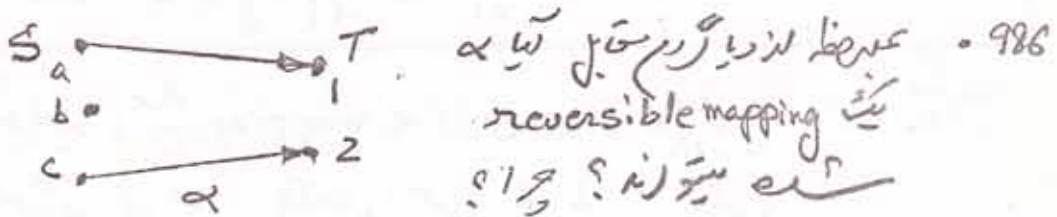 986. به ملاحظه از دیاگرام مقابل آیا α
یک reversible mapping
شده میتواند؟ چرا؟
S T
a 1
b
c 2
α